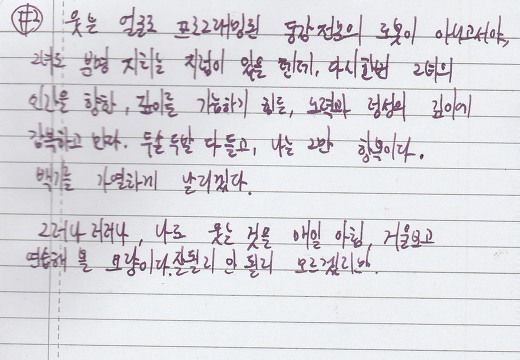 #2 웃는 얼굴로 프로그래밍된 동감전문의 로봇이 아니고서야,
그녀도 분명 지치는 지점이 있을 텐데, 다시한번 그녀의
인간을 향한, 깊이를 가늠하기 힘든, 노력과 정성의 깊이에
감복하고 만다. 두손두발 다 들고, 나는 그만 항복이다.
백기를 가열하게 날리겠다.
그러나 러러나, 나도 웃는 것을 매일 아침, 거울보고
연습해 볼 모양이다. 잘될리 안 될리 모르겠지만.